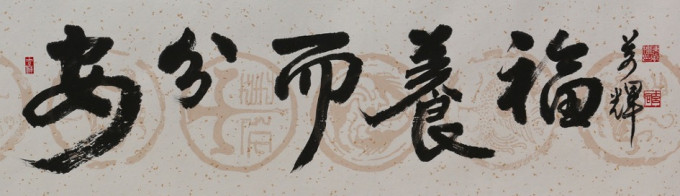 安分而養福
萬輝